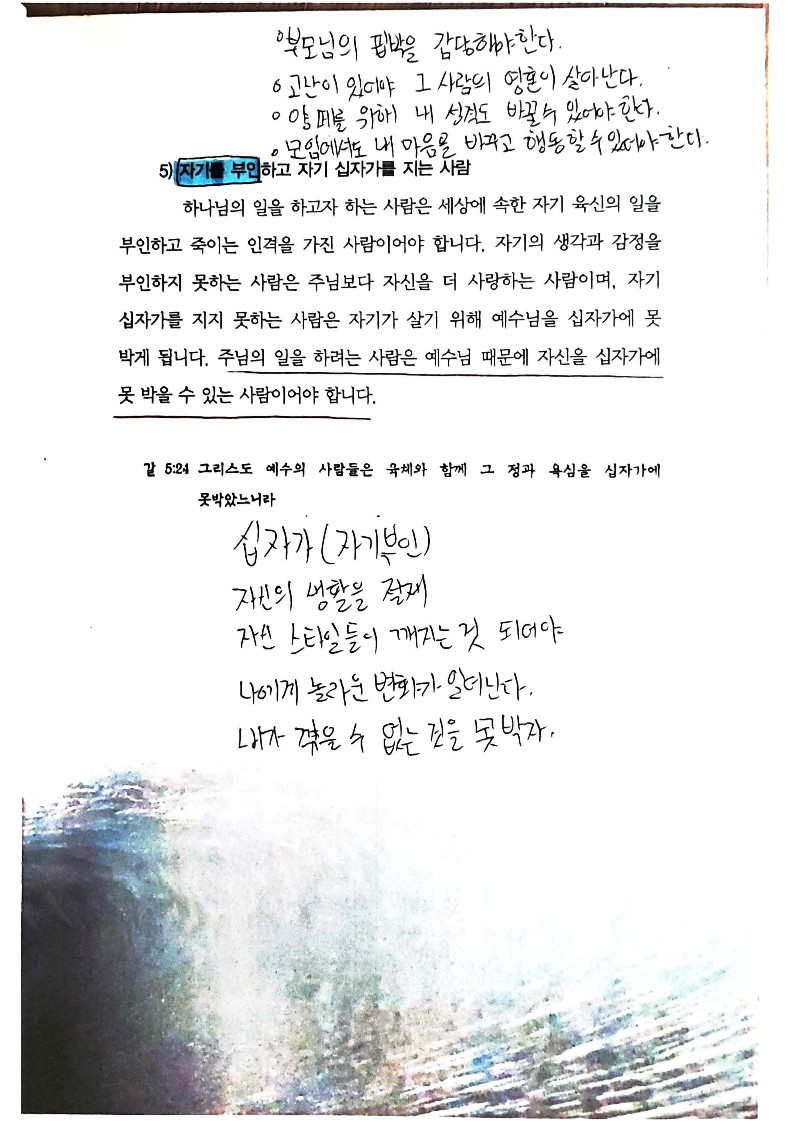 ○부모님의 핍박을 감당해야한다.
○고난이 있어야 그 사람의 영혼이 살아난다.
○양떼를 위해 내 성격도 바꿀수 있어야한다.
○모임에서도 내 마음을 바꾸고 행동할수있어야한다.
5) 자기를 부인하고 자기 십자가를 지는 사람
하나님의 일을 하고자 하는 사람은 세상에 속한 자기 육신의 일을
부인하고 죽이는 인격을 가진 사람이어야 합니다. 자기의 생각과 감정을
부인하지 못하는 사람은 주님보다 자신을 더 사랑하는 사람이며, 자기
십자가를 지지 못하는 사람은 자기가 살기 위해 예수님을 십자가에 못
박게 됩니다. 주님의 일을 하려는 사람은 예수님 때문에 자신을 십자가에
못 박을 수 있는 사람이어야 합니다.
갈 5:24 그리스도 예수의 사람들은 육체와 함께 그 정과 욕심을 십자가에
못박았느니라
십자가(자기부인)
자신의 생활을 절제
자신 스타일들이 깨지는 것 되어야
나에게 놀라운 변화가 일어난다.
내가 꺾을 수 없는 것을 못박자.